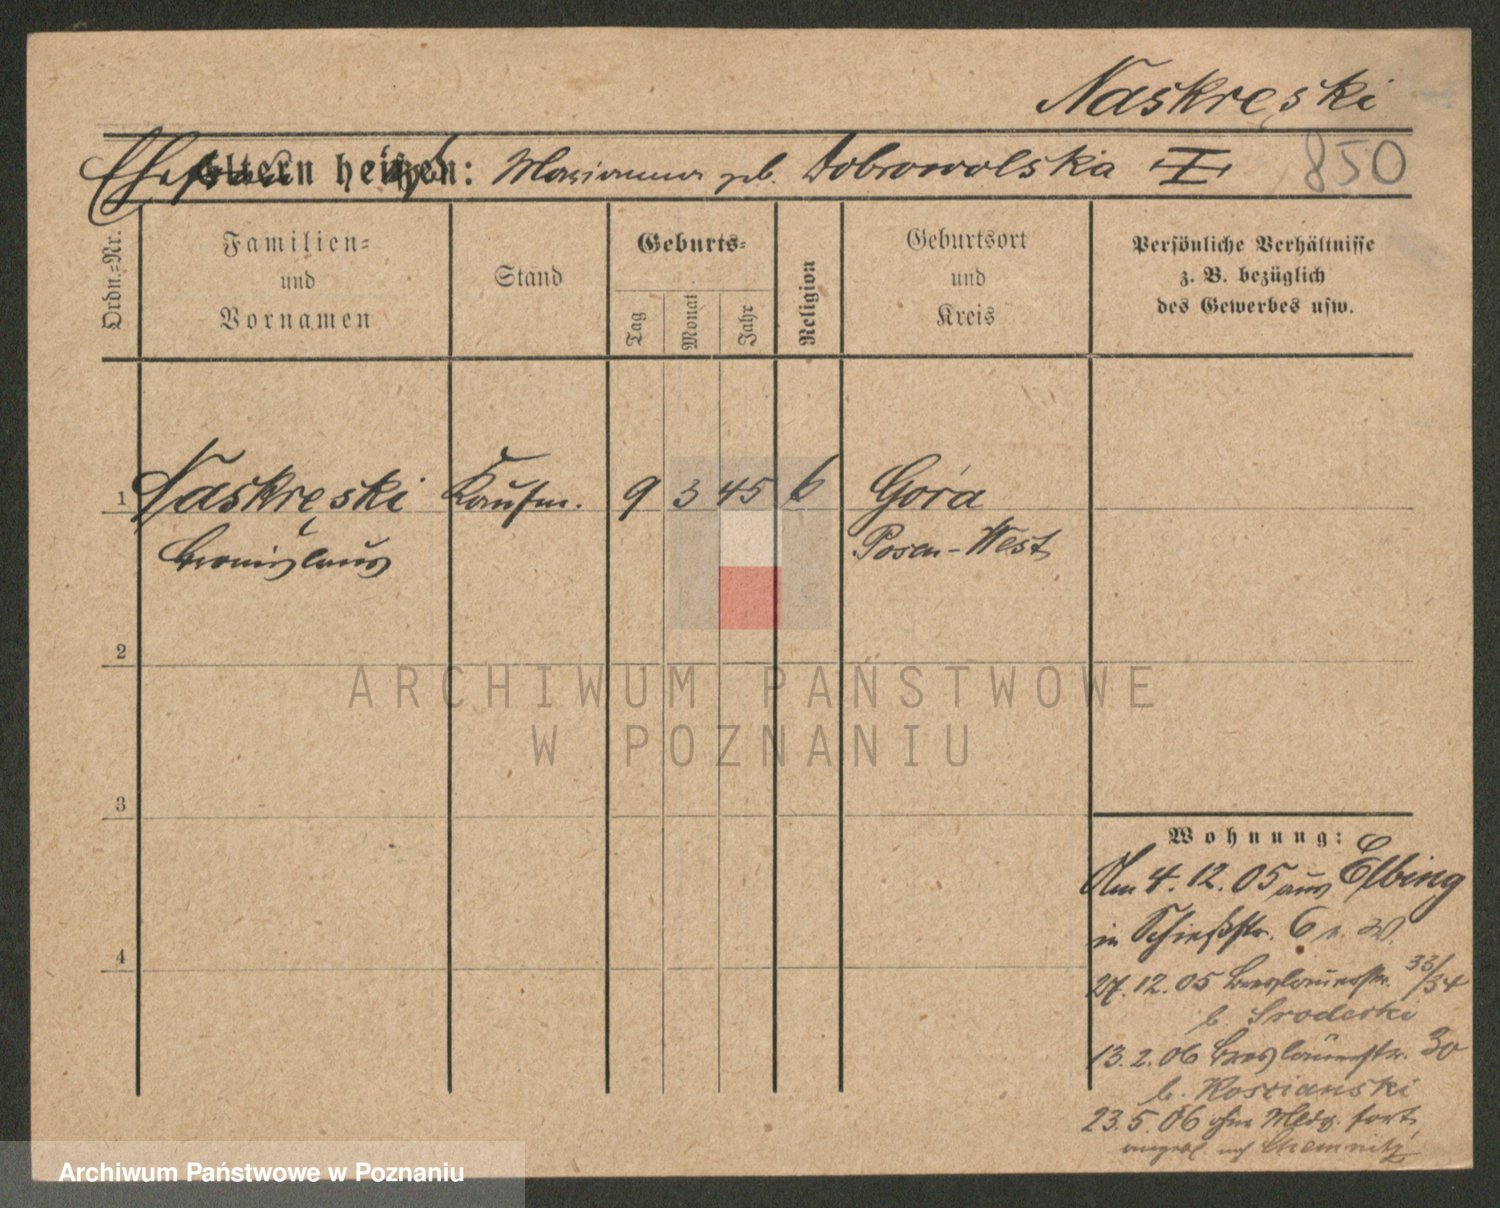 Naskręski
Eltern heißen: Marianna geb. Dobrowolska I
850
Ordn.=Nr.
Familien=
und
Vornamen
Stand
Geburts=
Tag
Monat
Jahr
Religion
Geburtsort
und
Kreis
Persönliche Verhältnisse
z. B. bezüglich
des Gewerbes usw.
1 Naskręski Kaufm. 9 3 45 Góra
Bronislaus Posen-West
2
ARCHIWUM PAŃSTWOWE
W POZNANIU
3
Wohnung:
Am 4. 12. 05 aus Elbing
in Schießstr. 6
4
27. 12. 05 Breslauerstr. 33/34
b. Srodecki
13. 2. 06 Breslauerstr. 30
b. Koscianski
23. 5. 06 ohne Meldg. fort,
angebl. nach Chemnitz
Archiwum Państwowe w Poznaniu